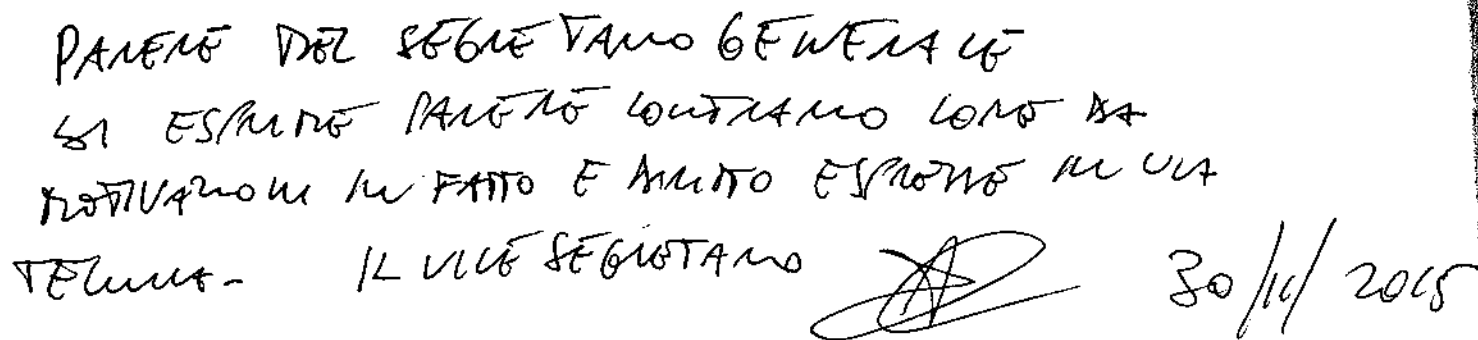 PARERE DEL SEGRETARIO GENERALE
SI ESPRIME PARERE CONTRARIO COME DA
MOTIVAZIONI IN FATTO E DIRITTO ESPRESSE IN VIA
TECNICA- IL VICE SEGRETARIO 30/11/2015